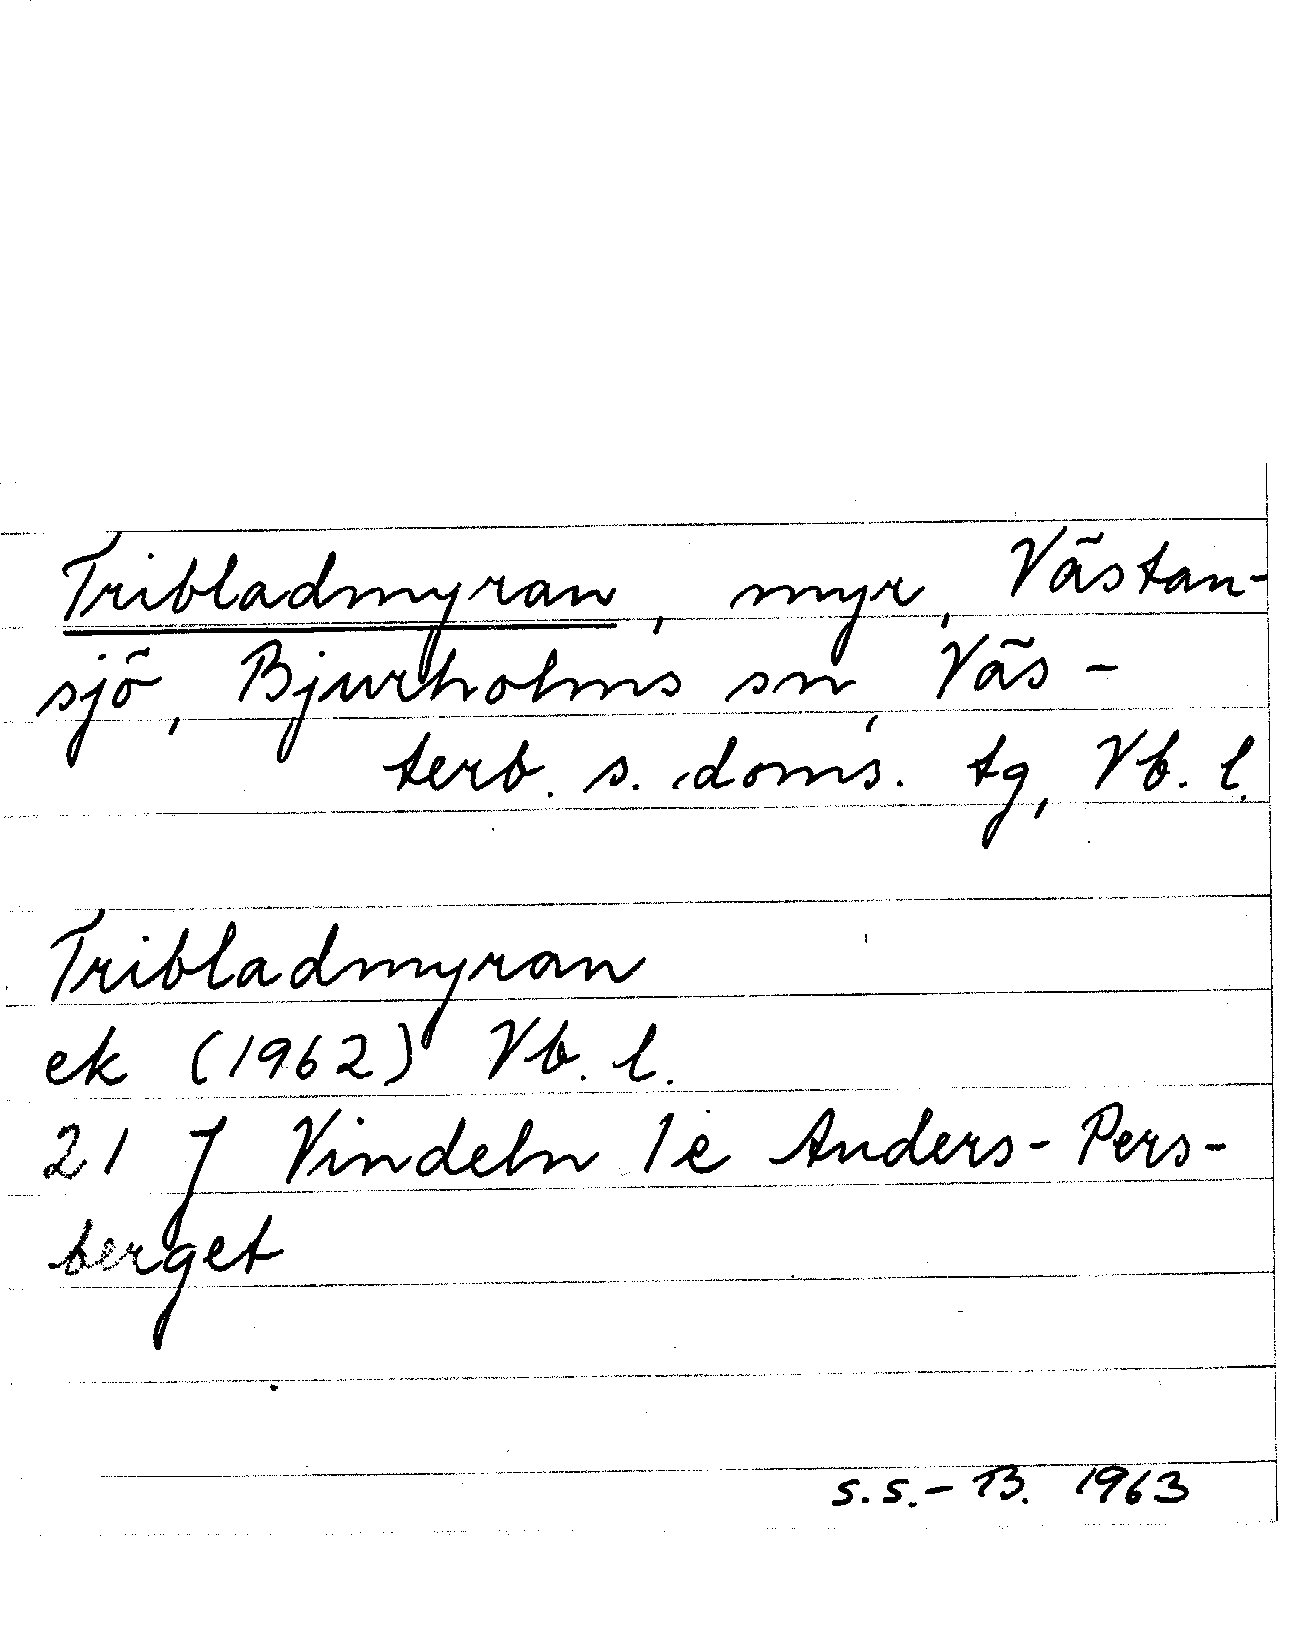 Tribladmyran, myr, Västan-
sjö, Bjurholms sn, Väs-
terb. s. doms. tg, Vb. l.
Tribladmyran
ek (1962) Vb. l.
21 J Vindeln 1e Anders-Pers-
berget
S.S.-B. 1963